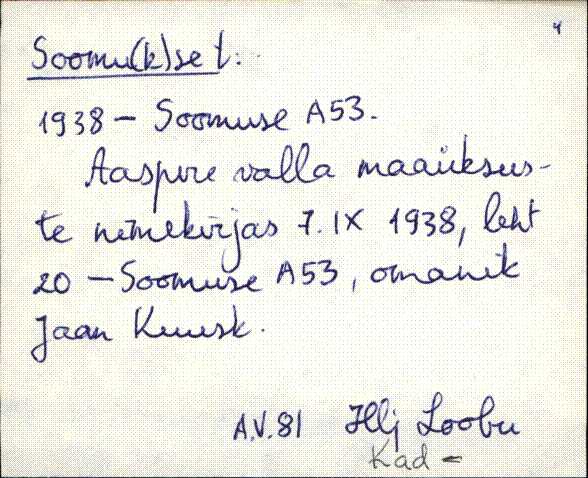 4
Soomu(k)se t.
1938 – Soomuse A53.
Aaspere valla maaüksus-
te nimekirjas 7.IX 1938, leht
20 – Soomuse A53, omanik
Jaan Kuusk.
A.V. 81 Hlj Loobu
Kad –